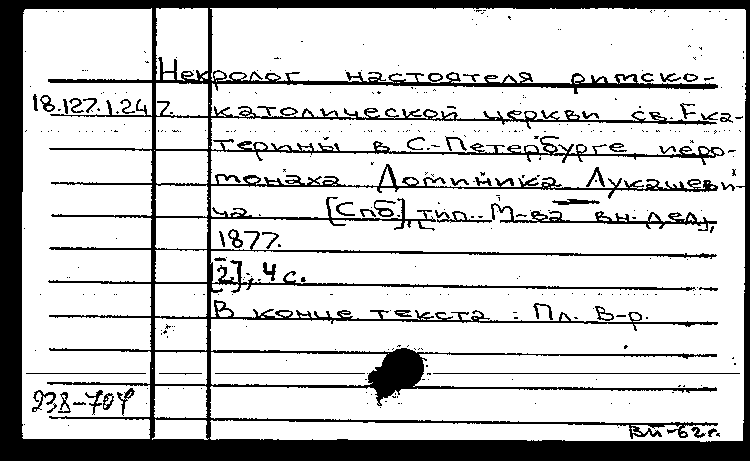 Некролог настоятеля римско-
18.127.1.247. католической церкви св. Ека-
терины в С.-Петербурге, иеро-
монаха Доминика Лукашеви-
ча. [Спб], [тип. М-ва вн. дел],
1877.
[2], 4 с.
В конце текста: Пл. В-р.
238-704
ВИ-62г.